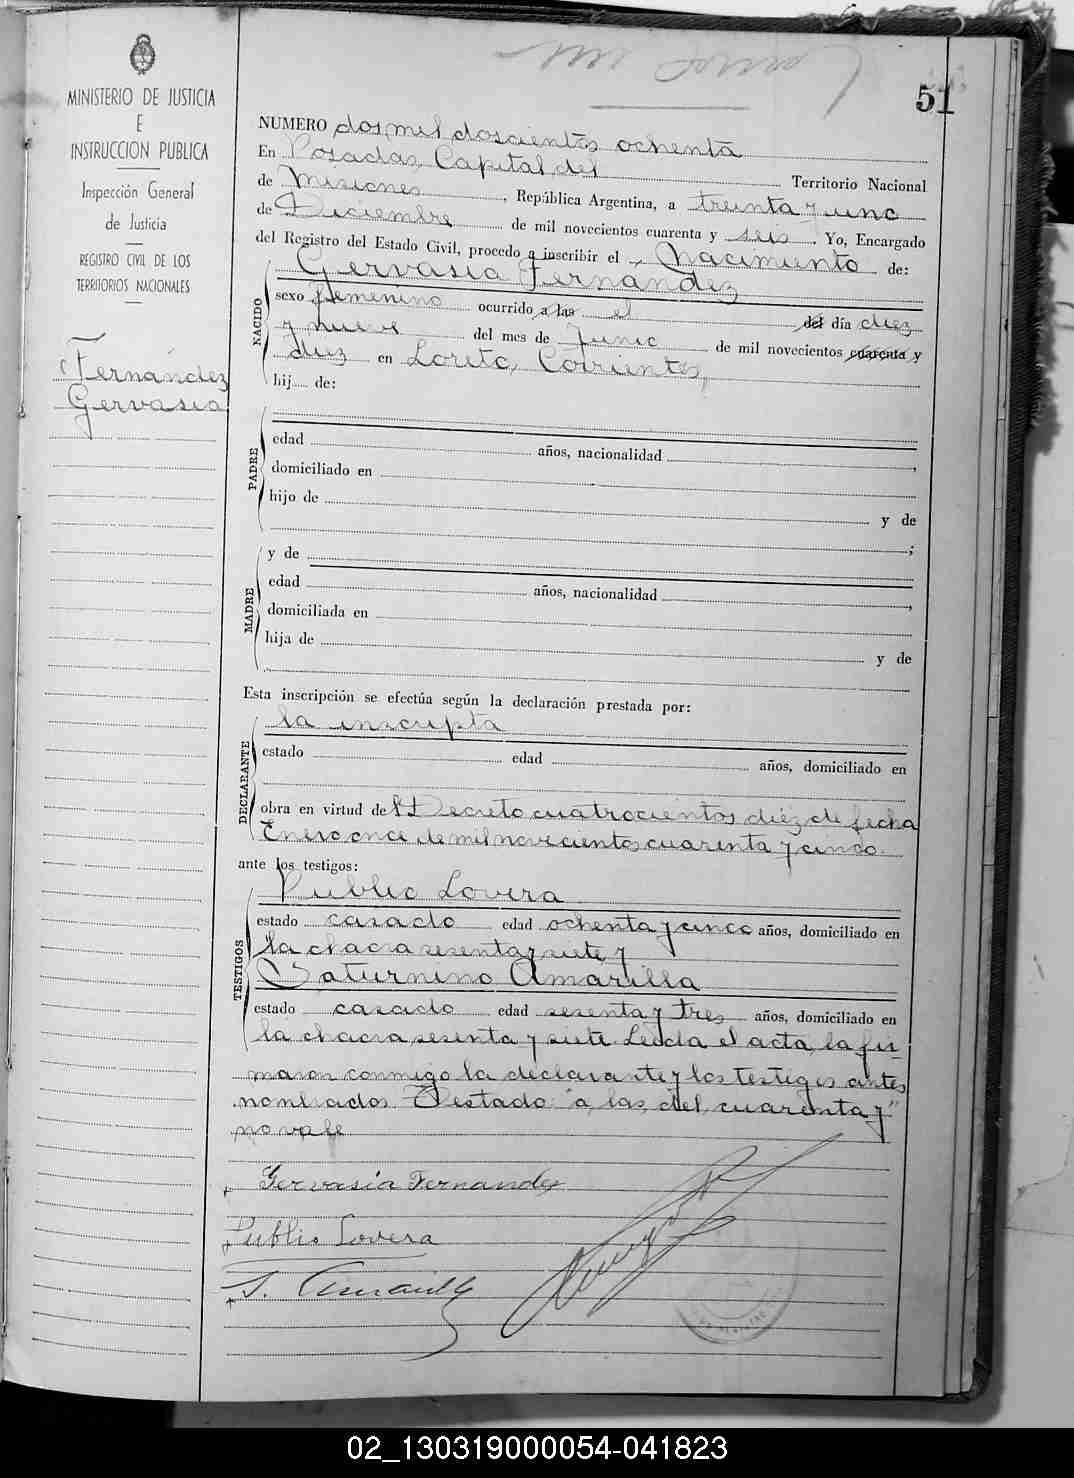 51
MINISTERIO DE JUSTICIA
E
INSTRUCCION PUBLICA
Inspección General
de Justicia
REGISTRO CIVIL DE LOS
TERRITORIOS NACIONALES
Fernández
Gervasia
NUMERO dos mil doscientos ochenta
En Posadas, Capital del Territorio Nacional
de Misiones, República Argentina, a treinta y uno
de Diciembre de mil novecientos cuarenta y seis. Yo, Encargado
del Registro del Estado Civil, procedo a inscribir el Nacimiento de:
Gervasia Fernández
NACIDO
sexo femenino ocurrido a las el del día diez
y nueve del mes de Junio de mil novecientos cuarenta y
diez en Loreto, Corrientes,
hij de:
PADRE
edad años, nacionalidad ,
domiciliado en
hijo de y de
;
MADRE
y de
edad años, nacionalidad ,
domiciliada en
hija de y de
Esta inscripción se efectúa según la declaración prestada por:
DECLARANTE
la inscripta
estado edad años, domiciliado en
obra en virtud del Decreto cuatrocientos diez de fecha
Enero once de mil novecientos cuarenta y cinco.
ante los testigos:
TESTIGOS
Publio Lovera
estado casado edad ochenta y cinco años, domiciliado en
la chacra sesenta y siete y
Saturnino Amarilla
estado casado edad sesenta y tres años, domiciliado en
la chacra sesenta y siete. Leída el acta, la fir-
maron conmigo la declarante y los testigos antes
nombrados. Testado: "a las, del, cuarenta y"
no vale
Gervasia Fernandez
Publio Lovera
S. Amarilla
02_130319000054-041823